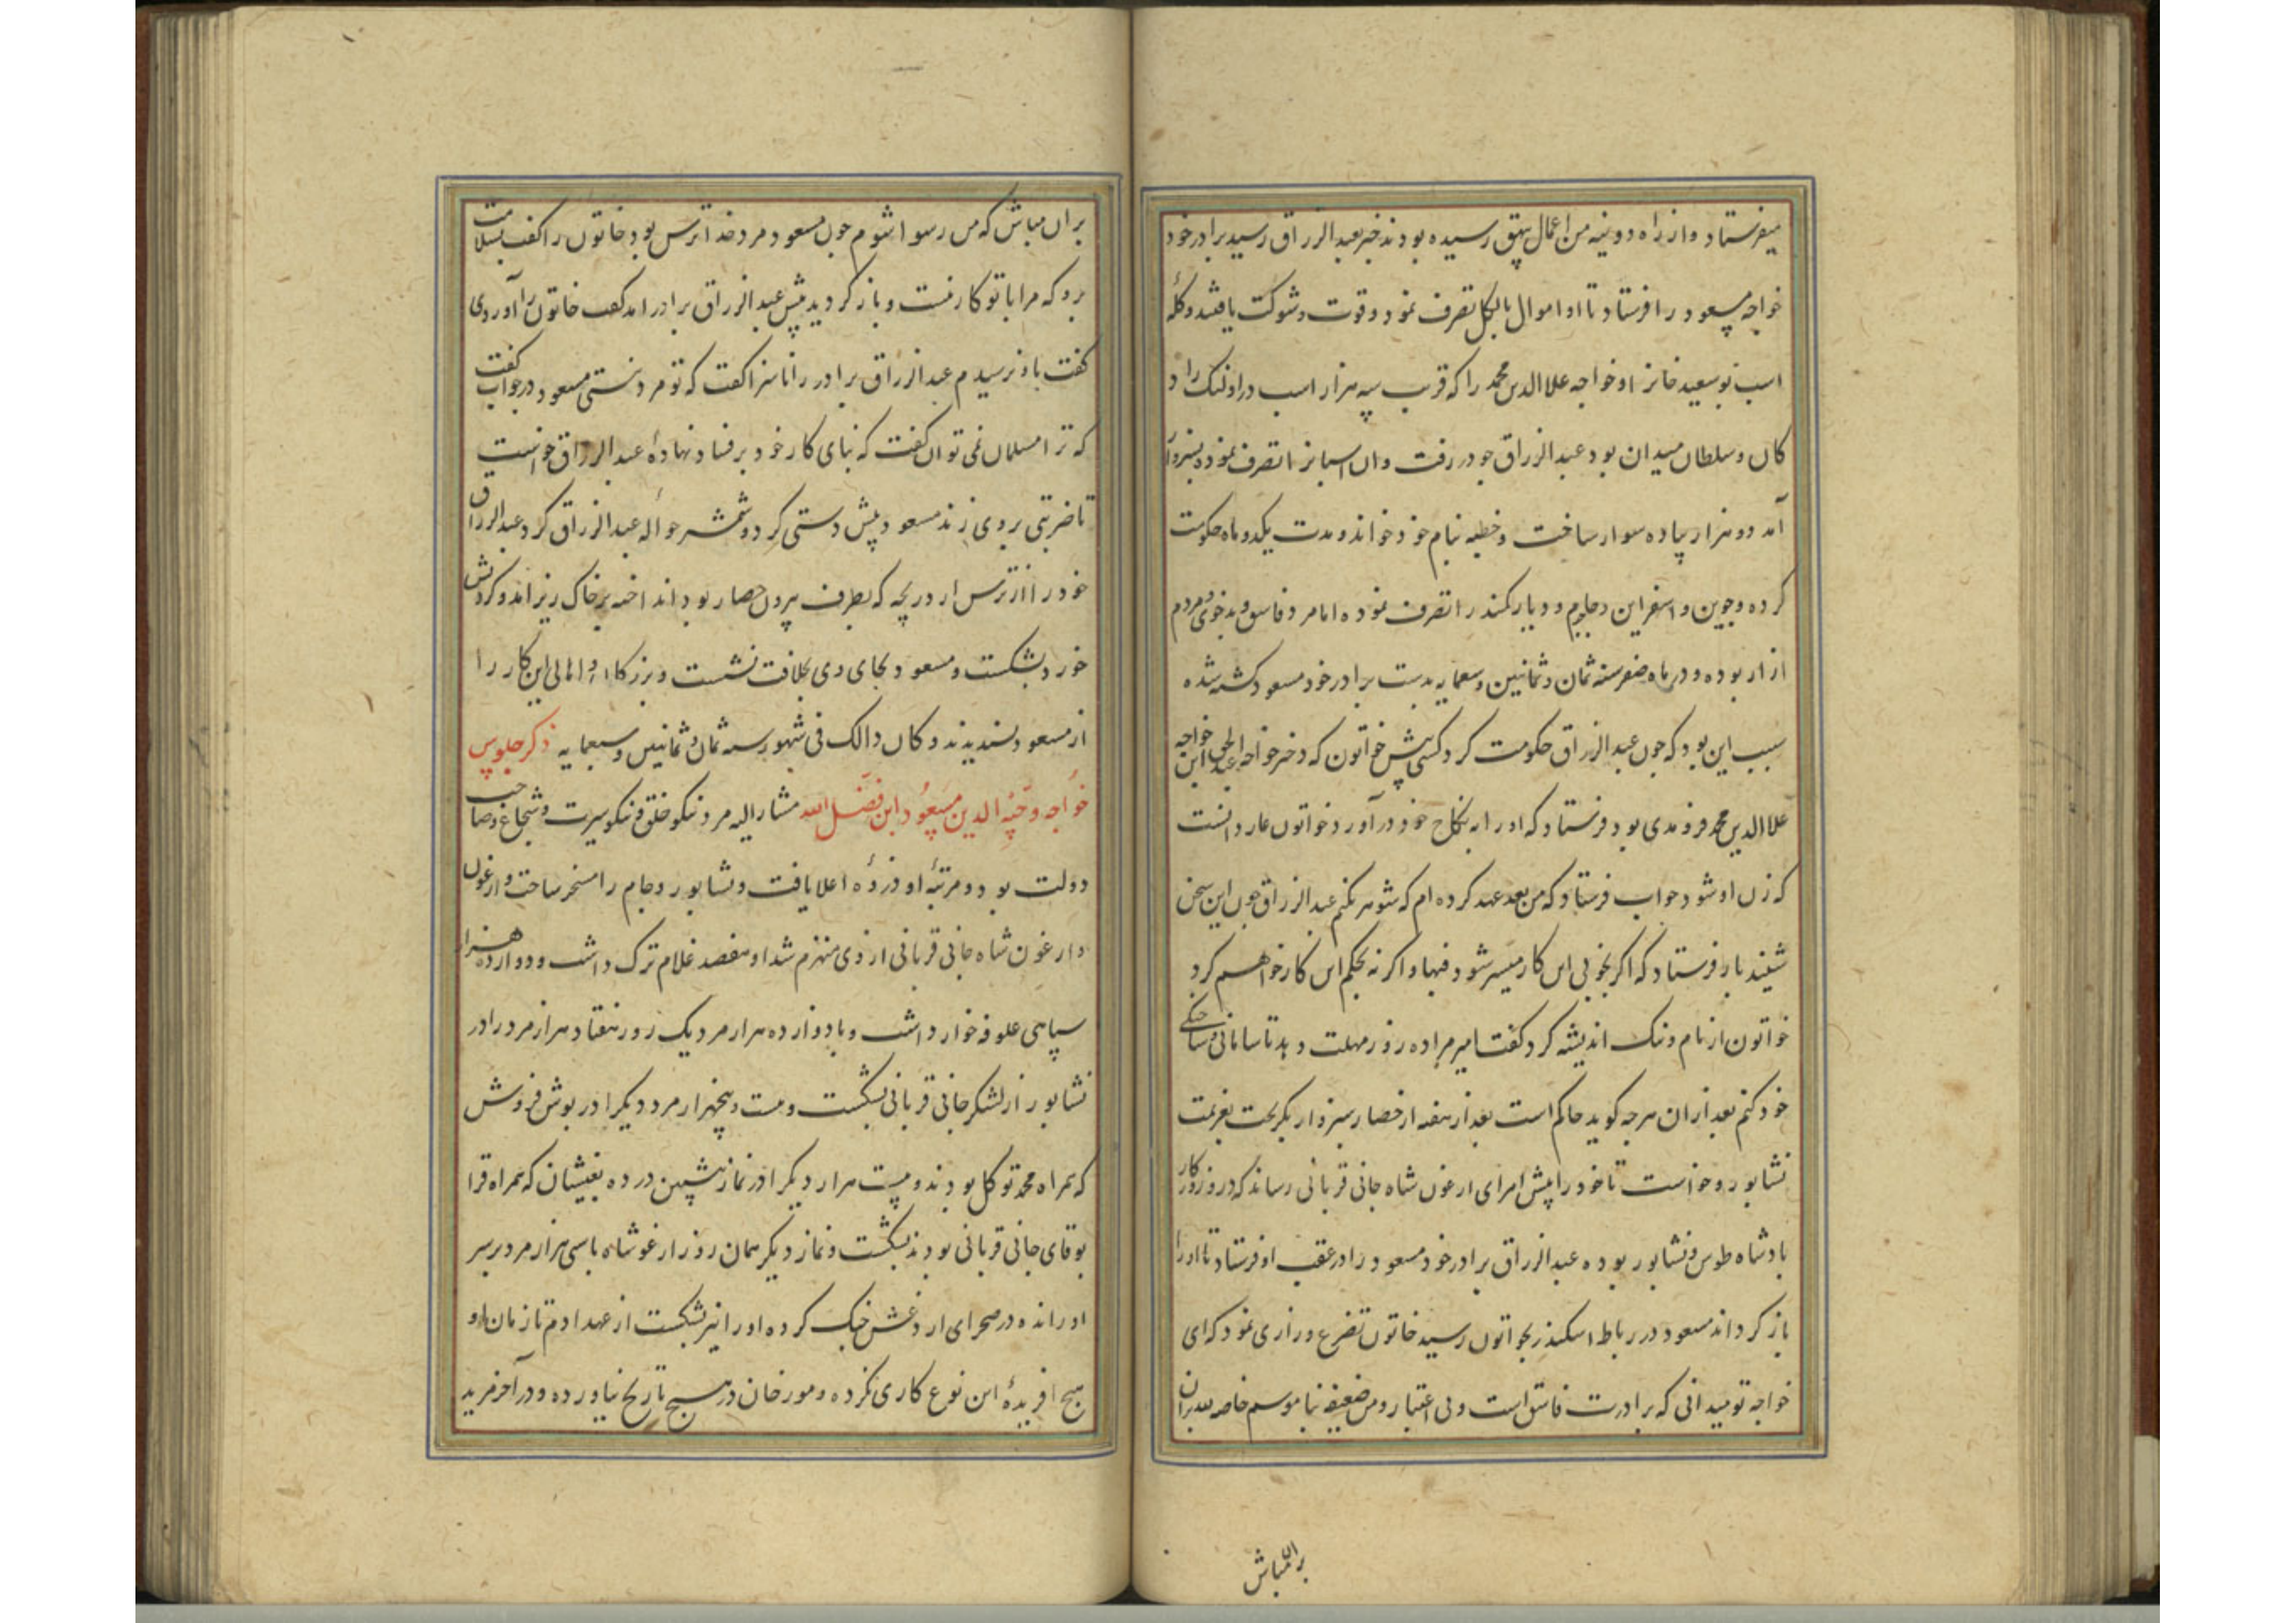 میفرستاد و از راه دوینه من اعمال بیهق رسیده بودند خبر بعبد الرزاق رسید برادر خود
خواجه مسعود را فرستاد تا او اموال بالکل تصرف نمود و قوت و شوکت یافتند و کلهٔ
اسب نو سعید خانرا و خواجه علاالدین محمد را که قرب سه هزار اسب در اولنک راد
کان و سلطان میدان بود عبد الرزاق خود رفت و ان اسبانرا تصرف نموده بسبزوار
آمد دو هزار پیاده سوار ساخت و خطبه بنام خود خواند و مدت یکدو ماه حکومت
کرده و جوین و اسفراین و جاجرم و دیار کمند را تصرف نموده اما مرد فاسق و بدخوی و مردم
ازار بوده و در ماه صفر سنه ثمان و ثمانین و سبعمایه بدست برادر خود مسعود کشته شده
سبب این بود که چون عبد الرزاق حکومت کرد کسی پیش خواتون که دختر خواجه عبد الحی ابن خواجه
علاالدین محمد فرومدی بود فرستاد که او را به نکاح خود در آورد خواتون عار دانست
که زن او شود جواب فرستاد که من بعد عهد کرده ام که شوهر نکنم عبد الرزاق چون این سخن
شنید باز فرستاد که اکر بخوبی این کار میسر شود فبها و اکر نه بحکم این کار خواهم کرد
خواتون از نام و ننک اندیشه کرد کفت امیر مرا ده روز مهلت دهد تا سامانی و ساختکی
خود کنم بعد از ان هرچه کوید حاکم است بعد از هفته از حصار سبزوار بکریخت بعزیمت
نشابور و خواست تا خود را پیش امرای ارغون شاه جانی قربانی رساند که در روزکار
بادشاه طوس و نشابور بوده عبد الرزاق برادر خود مسعود را در عقب او فرستاد تا او را
باز کرداند مسعود در رباط اسکندر بخواتون رسید خاتون تضرع و زاری نمود که ای
خواجه تو میدانی که برادرت فاسق است و بی اعتبار و من ضعیفه بناموسم خاصه بعد بران
بران مباش
بران مباش که من رسوا شوم چون مسعود مرد خدا ترس بود خاتون را کفت بسلامت
برو که مرا با تو کار نیست و باز کردید پیش عبد الرزاق برادر امد کفت خاتون را آوردی
کفت باو نرسیدم عبد الرزاق برادر را ناسزا کفت که تو مرد نیستی مسعود در جواب کفت
که ترا مسلمان نمی توان کفت که بنای کار خود بر فساد نهادهٔ عبد الرزاق خواست
تا ضربتی بر وی زند مسعود پیش دستی کرد و شمشیر حواله عبد الرزاق کرد عبد الرزاق
خود را از ترس از دریچه که بطرف بیرون حصار بود انداخته بر خاک ریز امد و کردنش
خورد بشکست و مسعود بجای وی بخلافت نشست و بزرکان و اهالی این کار را
از مسعود پسندیدند و کان ذالک فی شهور سنه ثمان و ثمانین و سبعمایه ذکر جلوس
خواجه وجیه الدین مسعود ابن فضل الله مشار الیه مرد نیکو خلق و نیکو سیرت و شجاع و صاحب
دولت بود و مرتبهٔ او ذروهٔ اعلا یافت و نشابور و جام را مسخر ساخت و ارغون
دارغون شاه جانی قربانی از وی منهزم شد او هفصد غلام ترک داشت و دوازده هزار
سپاهی علوفه خوار داشت و با دوازده هزار مرد یک روز هفتاد هزار مرد را در
نشابور از لشکر جانی قربانی بشکست و بیست و پنجهزار مرد دیکر را در بوش فروش
که همراه محمد توکل بودند و بیست هزار دیکر را در نماز پیشین در ده بغیشان که همراه قرا
بوقای جانی قربانی بودند بشکست و نماز دیکر همان روز ارغو شاه با سی هزار مرد بر سر
او رانده در صحرای اردغش جنک کرده او را نیز بشکست از عهد ادم تا زمان او
هیچ افریدهٔ این نوع کاری نکرده و مورخان در هیچ تاریخ نیاورده و در آخر فرید